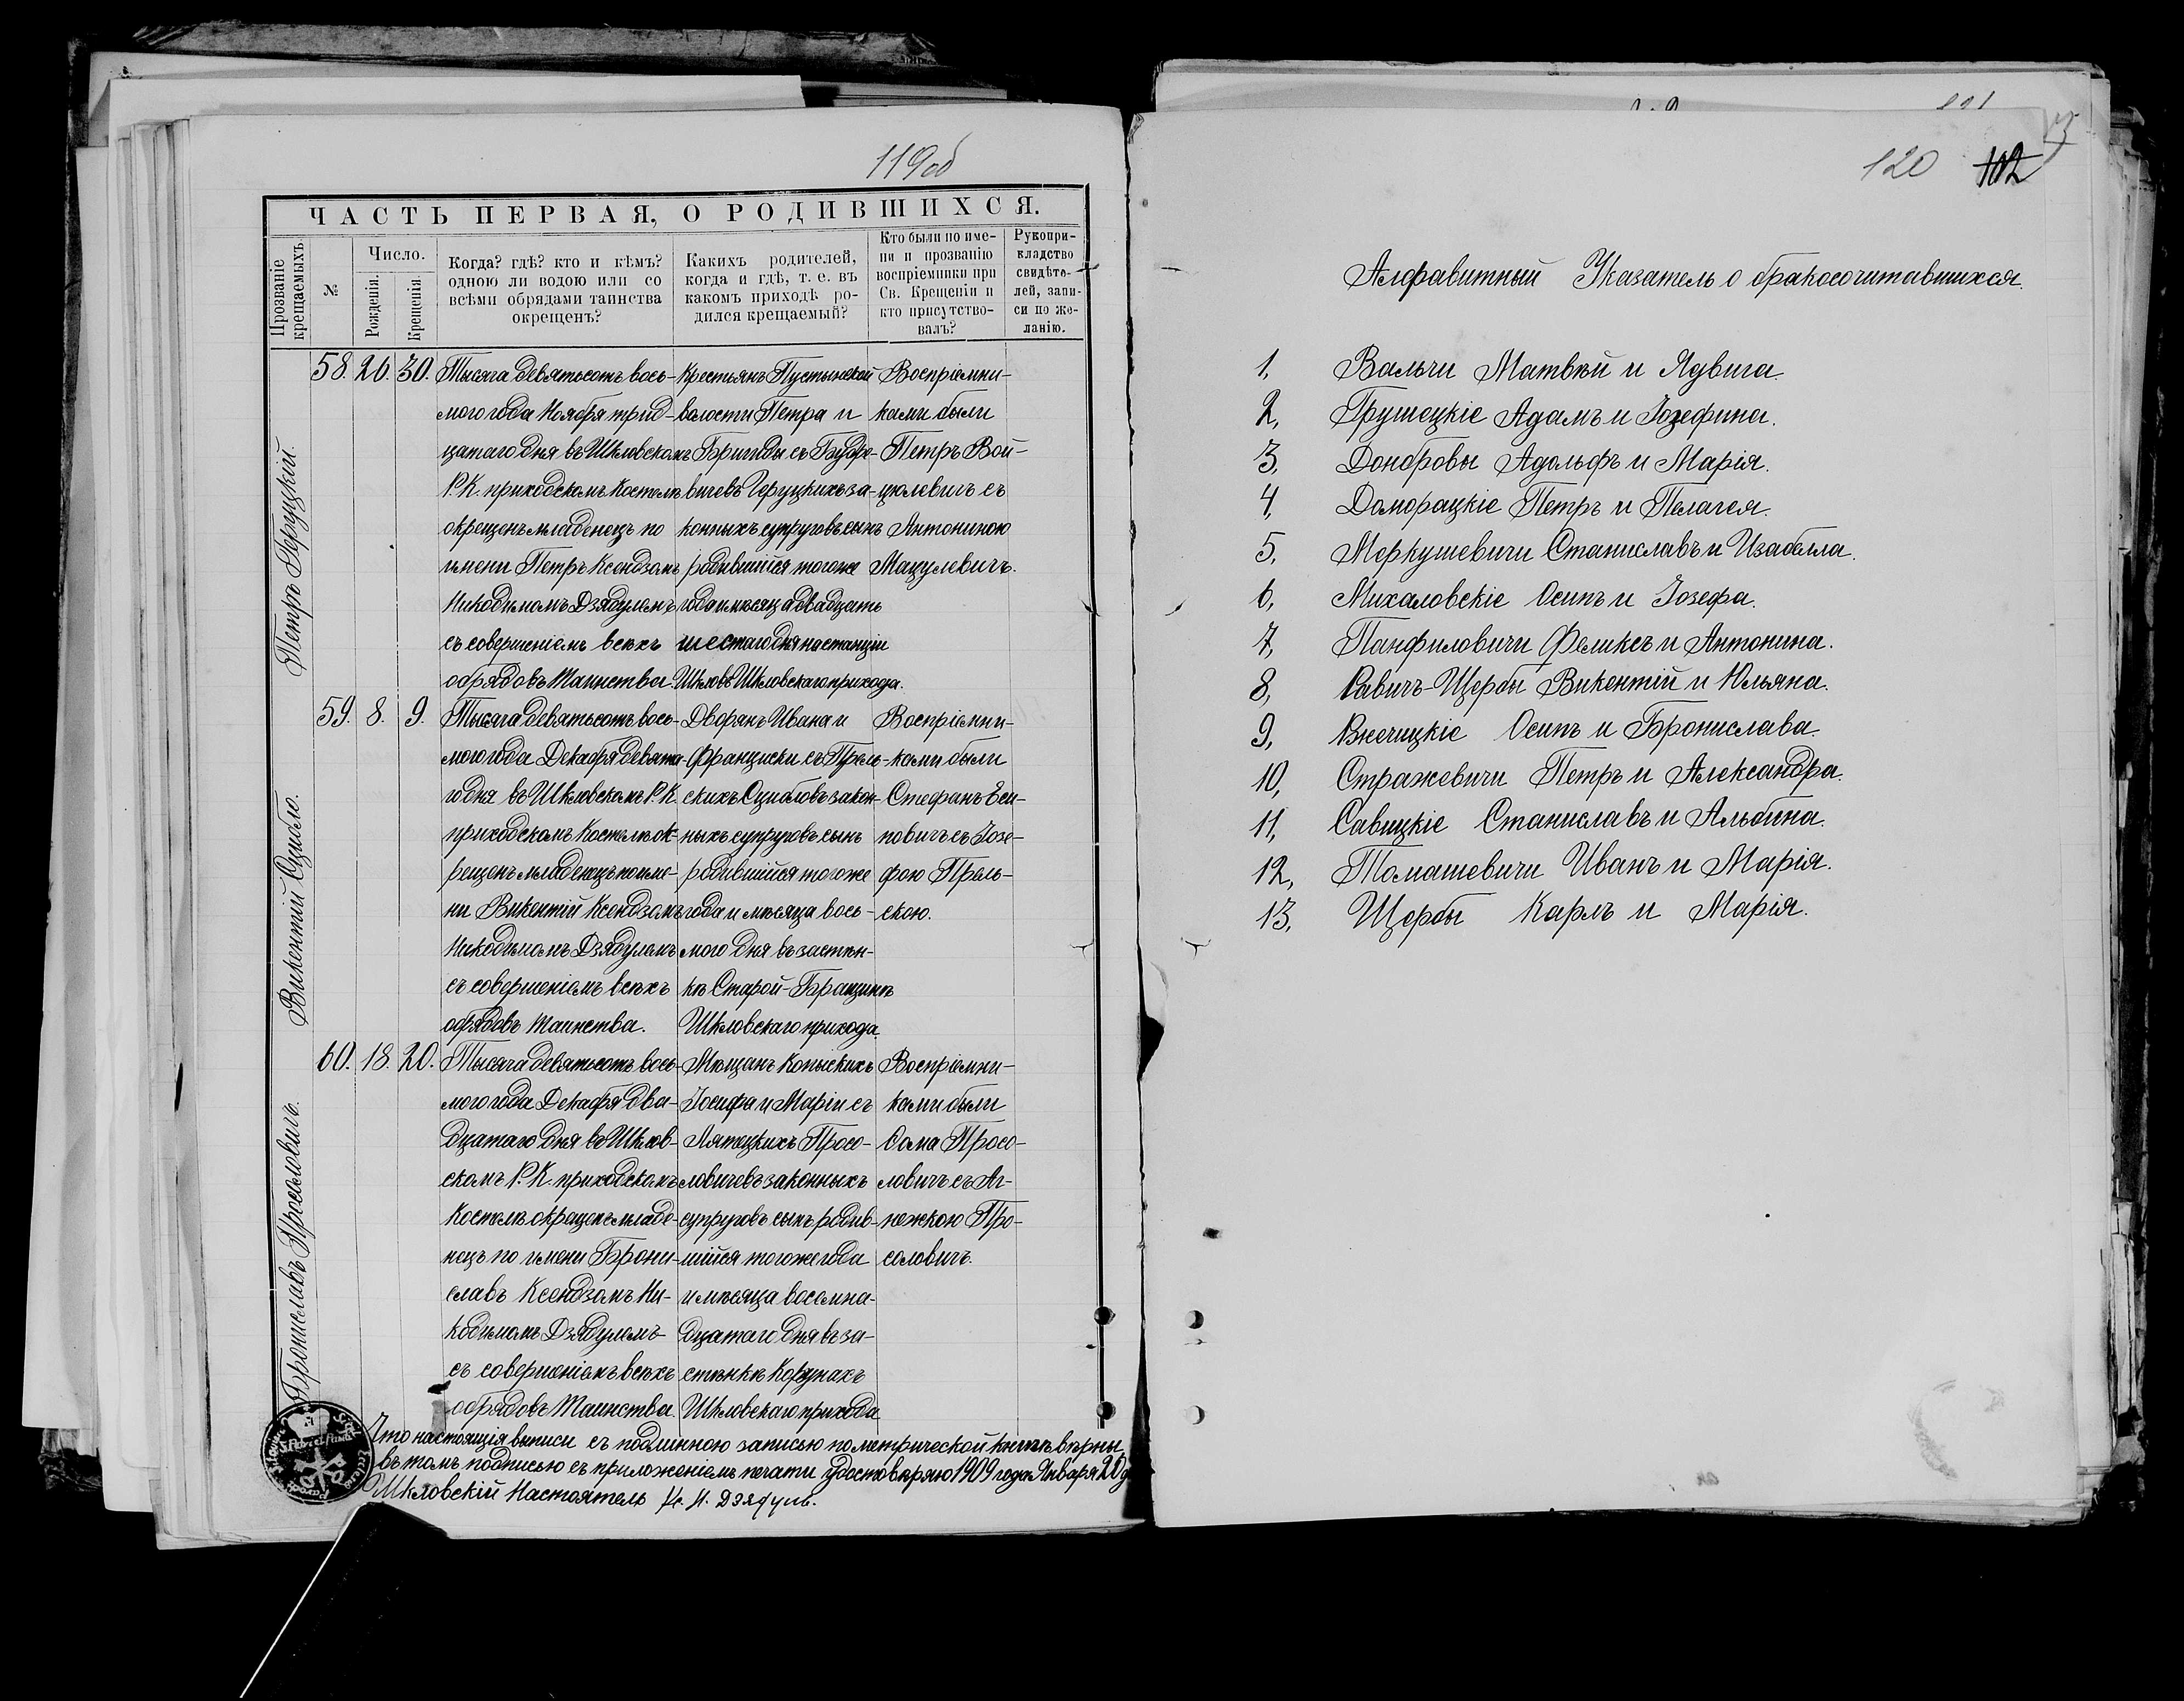 119об
ЧАСТЬ ПЕРВАЯ, О РОДИВШИХСЯ.
Прозваніе крещаемыхъ.
№
Число.
Рожденія.
Крещенія
Когда? гдѣ? кто и кѣмъ?
одною ли водою или со
всѣми обрядами таинства
окрещенъ?
Какихъ родителей,
когда и гдѣ, т. е. въ
какомъ приходѣ ро-
дился крещаемый?
Кто были по име-
ни и прозванію
воспріемники при
Св. Крещеніи и
кто присутство-
валъ?
Рукопри-
кладство
свидѣте-
лей, запи-
си по же-
ланію.
Петръ Геруцкій.
58. 26. 30.
Тысяча девятьсотъ вось-
мого года Ноября трид-
цатаго дня въ Шкловскомъ
Р.К. приходскомъ Костелѣ
окрещенъ младенецъ по
имени Петръ Ксендзомъ
Никодимомъ Дзябулемъ
съ совершеніемъ всѣхъ
обрядовъ Таинства.
Крестьянъ Пустынской
волости Петра и
Бригиды съ
вичевъ Геруцкихъ за-
конныхъ супруговъ сынъ
родившійся тогоже
года и мѣсяца двадцать
шестаго дня на станціи
Шкловъ Шкловскаго прихода.
Воспріемни-
ками были
Петръ Вой-
цюлевичъ съ
Антониною
Мацулевичъ.
Викентій Суцибло.
59. 8. 9.
Тысяча девятьсотъ вось-
мого года Декабря девята-
го дня въ Шкловскомъ Р.К.
приходскомъ Костелѣ ок-
рещенъ младенецъ по име-
ни Викентій Ксендзомъ
Никодимомъ Дзябулемъ
съ совершеніемъ всѣхъ
обрядовъ Таинства.
Дворянъ Ивана и
Франциски съ Прель-
скихъ закон-
ныхъ супруговъ сынъ
родившійся тогоже
года и мѣсяца вось-
мого дня въ застѣн-
кѣ Старой-Бращинѣ
Шкловскаго прихода.
Воспріемни-
ками были
Стефанъ Еси-
повичъ съ Іозе-
фою Прель-
скою.
Брониславъ Просоловичъ.
60. 18. 20.
Тысяча девятьсотъ вось-
мого года Декабря два-
дцатаго дня въ Шклов-
скомъ Р.К. приходскомъ
Костелѣ окрещенъ младе-
нецъ по имени Брони-
славъ Ксендзомъ Ни-
кодимомъ Дзябулемъ
съ совершеніемъ всѣхъ
обрядовъ Таинства.
Мѣщанъ Копыскихъ
Іосифа и Маріи съ
Лятецкихъ Просо-
ловичевъ законныхъ
супруговъ сынъ родив-
шійся тогоже года
и мѣсяца восемна-
дцатаго дня въ за-
стѣнкѣ
Шкловскаго прихода
Воспріемни-
ками были
Ѳома Просо-
ловичъ съ Аг-
нежкою Про-
соловичъ.
Что настоящія выписи съ подлинною записью по метрической книгѣ вѣрны,
въ томъ подписью съ приложеніемъ печати удостовѣряю 1909 года Января 20 д
Шкловскій Настоятель Кс. Н. Дзябуль.
120 102
Алфавитный Указатель о бракосочитавшихся.
1, Вальчи Матвѣй и Ядвига.
2, Грушецкіе Адамъ и Іозефина.
3, Домбровы Адольфъ и Марія.
4, Доморацкіе Петръ и Пелагея.
5, Меркушевичи Станиславъ и Изабелла.
6, Михаловскіе Осипъ и Іозефа.
7, Панфиловичи Феликсъ и Антонина.
8, Равичъ-Щербы Викентій и Юльяна.
9, Ржечицкіе Осипъ и Бронислава.
10, Стражевичи Петръ и Александра.
11, Савицкіе Станиславъ и Альбина.
12, Томашевичи Иванъ и Марія.
13, Щербы Карлъ и Марія.